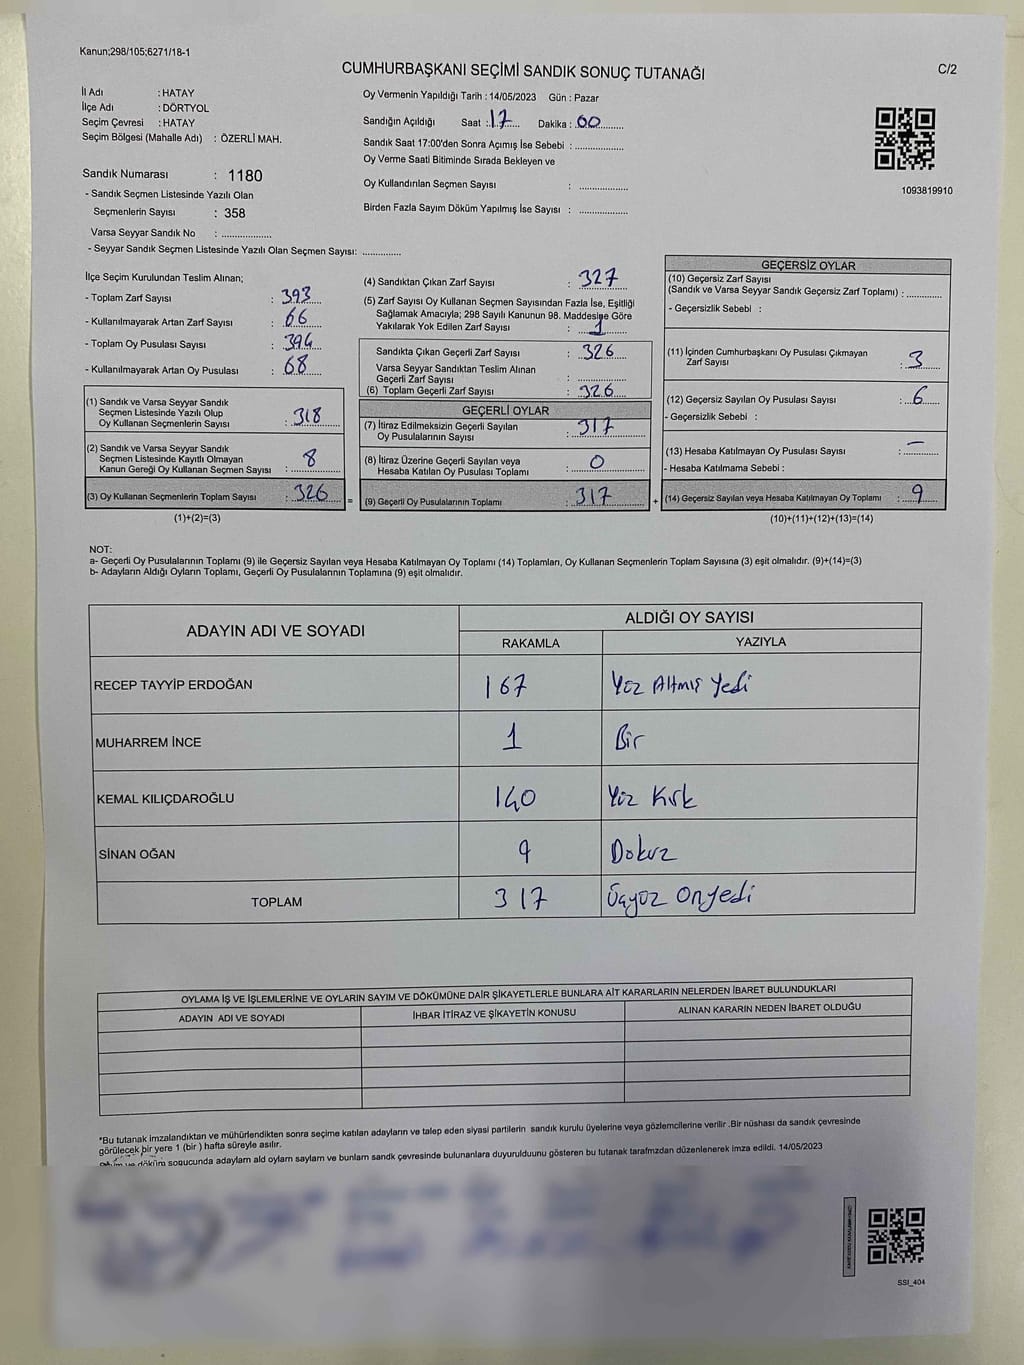 Kanun;298/105;6271/18-1
CUMHURBAŞKANI SEÇİMİ SANDIK SONUÇ TUTANAĞI
C/2
İl Adı : HATAY
İlçe Adı : DÖRTYOL
Seçim Çevresi : HATAY
Seçim Bölgesi (Mahalle Adı) : ÖZERLİ MAH.
Oy Vermenin Yapıldığı Tarih : 14/05/2023 Gün : Pazar
Sandığın Açıldığı Saat : 17 Dakika : 00
Sandık Saat 17:00'den Sonra Açımış İse Sebebi :
Oy Verme Saati Bitiminde Sırada Bekleyen ve
Oy Kullandırılan Seçmen Sayısı :
Birden Fazla Sayım Döküm Yapılmış İse Sayısı :
1093819910
Sandık Numarası : 1180
- Sandık Seçmen Listesinde Yazılı Olan
Seçmenlerin Sayısı : 358
Varsa Seyyar Sandık No :
- Seyyar Sandık Seçmen Listesinde Yazılı Olan Seçmen Sayısı:
İlçe Seçim Kurulundan Teslim Alınan;
- Toplam Zarf Sayısı : 393
- Kullanılmayarak Artan Zarf Sayısı : 66
- Toplam Oy Pusulası Sayısı : 394
- Kullanılmayarak Artan Oy Pusulası : 68
(1) Sandık ve Varsa Seyyar Sandık
Seçmen Listesinde Yazılı Olup
Oy Kullanan Seçmenlerin Sayısı : 318
(2) Sandık ve Varsa Seyyar Sandık
Seçmen Listesinde Kayıtlı Olmayan
Kanun Gereği Oy Kullanan Seçmen Sayısı : 8
(3) Oy Kullanan Seçmenlerin Toplam Sayısı : 326
(1)+(2)=(3)
(4) Sandıktan Çıkan Zarf Sayısı : 327
(5) Zarf Sayısı Oy Kullanan Seçmen Sayısından Fazla İse, Eşitliği
Sağlamak Amacıyla; 298 Sayılı Kanunun 98. Maddesine Göre
Yakılarak Yok Edilen Zarf Sayısı : 1
Sandıkta Çıkan Geçerli Zarf Sayısı : 326
Varsa Seyyar Sandıktan Teslim Alınan
Geçerli Zarf Sayısı :
(6) Toplam Geçerli Zarf Sayısı : 326
GEÇERLİ OYLAR
(7) İtiraz Edilmeksizin Geçerli Sayılan
Oy Pusulalarının Sayısı : 317
(8) İtiraz Üzerine Geçerli Sayılan veya
Hesaba Katılan Oy Pusulası Toplamı : 0
= (9) Geçerli Oy Pusulalarının Toplamı : 317 +
GEÇERSİZ OYLAR
(10) Geçersiz Zarf Sayısı
(Sandık ve Varsa Seyyar Sandık Geçersiz Zarf Toplamı) :
- Geçersizlik Sebebi :
(11) İçinden Cumhurbaşkanı Oy Pusulası Çıkmayan
Zarf Sayısı : 3
(12) Geçersiz Sayılan Oy Pusulası Sayısı : 6
- Geçersizlik Sebebi :
(13) Hesaba Katılmayan Oy Pusulası Sayısı : -
- Hesaba Katılmama Sebebi :
(14) Geçersiz Sayılan veya Hesaba Katılmayan Oy Toplamı : 9
(10)+(11)+(12)+(13)=(14)
NOT:
a- Geçerli Oy Pusulalarının Toplamı (9) ile Geçersiz Sayılan veya Hesaba Katılmayan Oy Toplamı (14) Toplamları, Oy Kullanan Seçmenlerin Toplam Sayısına (3) eşit olmalıdır. (9)+(14)=(3)
b- Adayların Aldığı Oyların Toplamı, Geçerli Oy Pusulalarının Toplamına (9) eşit olmalıdır.
ADAYIN ADI VE SOYADI
ALDIĞI OY SAYISI
RAKAMLA YAZIYLA
RECEP TAYYİP ERDOĞAN 167 Yüz Altmış Yedi
MUHARREM İNCE 1 Bir
KEMAL KILIÇDAROĞLU 140 Yüz Kırk
SİNAN OĞAN 9 Dokuz
TOPLAM 317 Üçyüz Onyedi
OYLAMA İŞ VE İŞLEMLERİNE VE OYLARIN SAYIM VE DÖKÜMÜNE DAİR ŞİKAYETLERLE BUNLARA AİT KARARLARIN NELERDEN İBARET BULUNDUKLARI
ADAYIN ADI VE SOYADI İHBAR İTİRAZ VE ŞİKAYETİN KONUSU ALINAN KARARIN NEDEN İBARET OLDUĞU
*Bu tutanak imzalandıktan ve mühürlendikten sonra seçime katılan adayların ve talep eden siyasi partilerin sandık kurulu üyelerine veya gözlemcilerine verilir .Bir nüshası da sandık çevresinde
görülecek bir yere 1 (bir ) hafta süreyle asılır.
döküm sonucunda adayların ald oyların sayların ve bunların sandk çevresinde bulunanlara duyurulduunu gösteren bu tutanak tarafmzdan düzenlenerek imza edildi. 14/05/2023
SSI_404